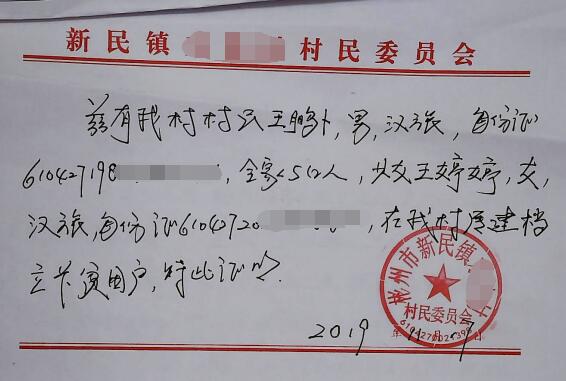 新民镇 村民委员会
兹有我村村民王鹏卜,男,汉族,身份证
610427198 ,全家5口人,长女王婷婷,女,
汉族,身份证61042720 ,在我村属建档
立卡贫困户,特此证明.
彬州市新民镇
村民委员会
2019年 月 7